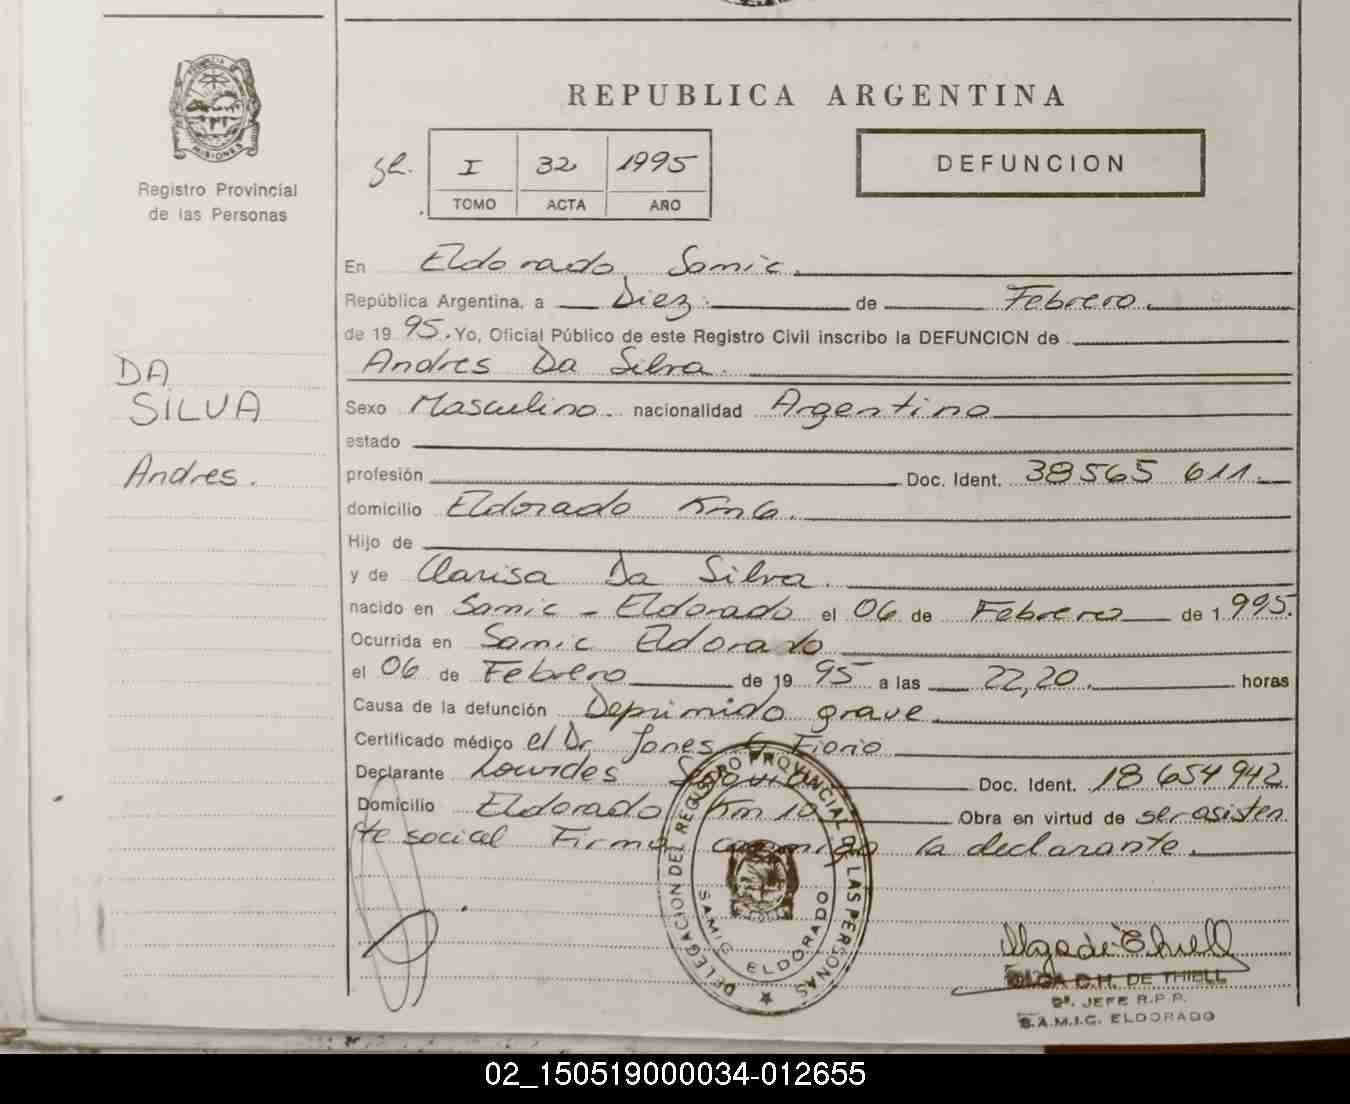 PROVINCIA DE MISIONES
Registro Provincial
de las Personas
DA
SILVA
Andres.
REPUBLICA ARGENTINA
I 32 1995
TOMO ACTA AÑO
DEFUNCION
En Eldorado Samic.
República Argentina, a Diez. de Febrero.
de 19 95. Yo, Oficial Público de este Registro Civil inscribo la DEFUNCION de
Andres Da Silva.
Sexo Masculino. nacionalidad Argentina
estado
profesión Doc. Ident. 38565 611.
domicilio Eldorado Km 6.
Hijo de
y de Clarisa Da Silva.
nacido en Samic - Eldorado el 06 de Febrero de 1.995.
Ocurrida en Samic Eldorado
el 06 de Febrero de 19 95 a las 22,20. horas
Causa de la defunción Deprimido grave
Certificado médico el Dr. Jones G Fiorio
Declarante Lourdes Doc. Ident. 18 654 942
Domicilio Eldorado Km 10 Obra en virtud de ser asisten
te social Firma conmigo la declarante.
DELEGACION DEL REGISTRO PROVINCIAL DE LAS PERSONAS
SAMIC ELDORADO
OLGA C.H. DE THIELL
2º. JEFE R.P.P.
S.A.M.I.C. ELDORADO
02_150519000034-012655